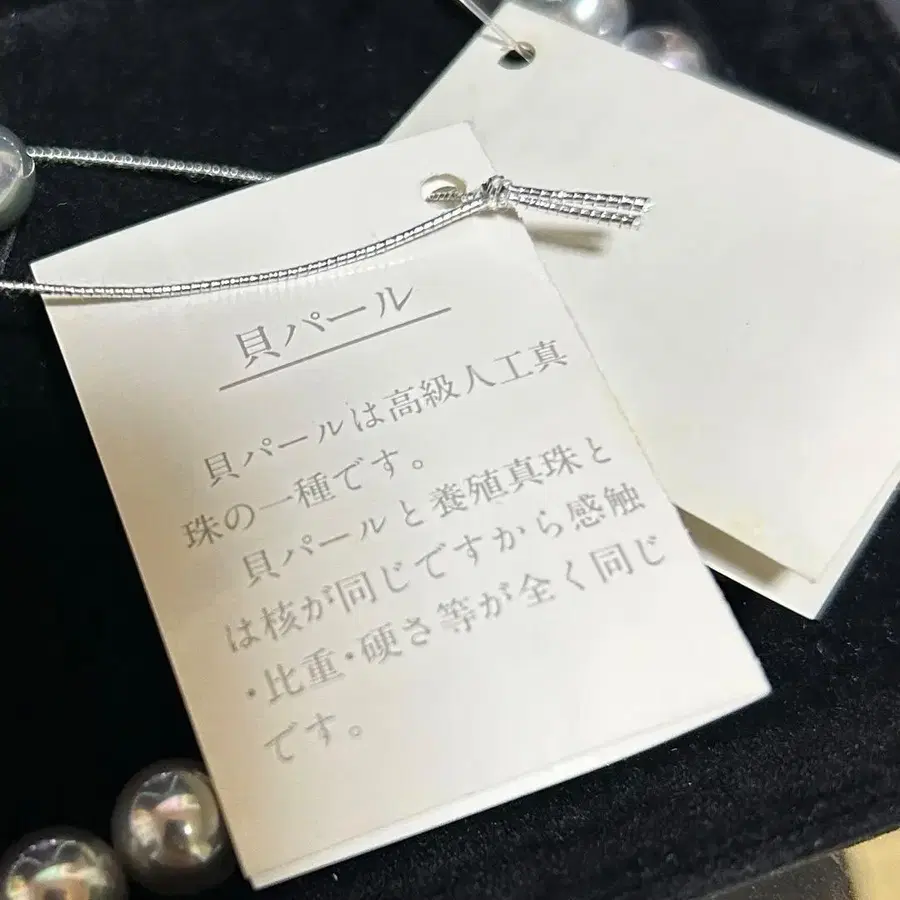 貝パール
貝パールは高級人工真
珠の一種です。
貝パールと養殖真珠と
は核が同じですから感触
・比重・硬さ等が全く同じ
です。